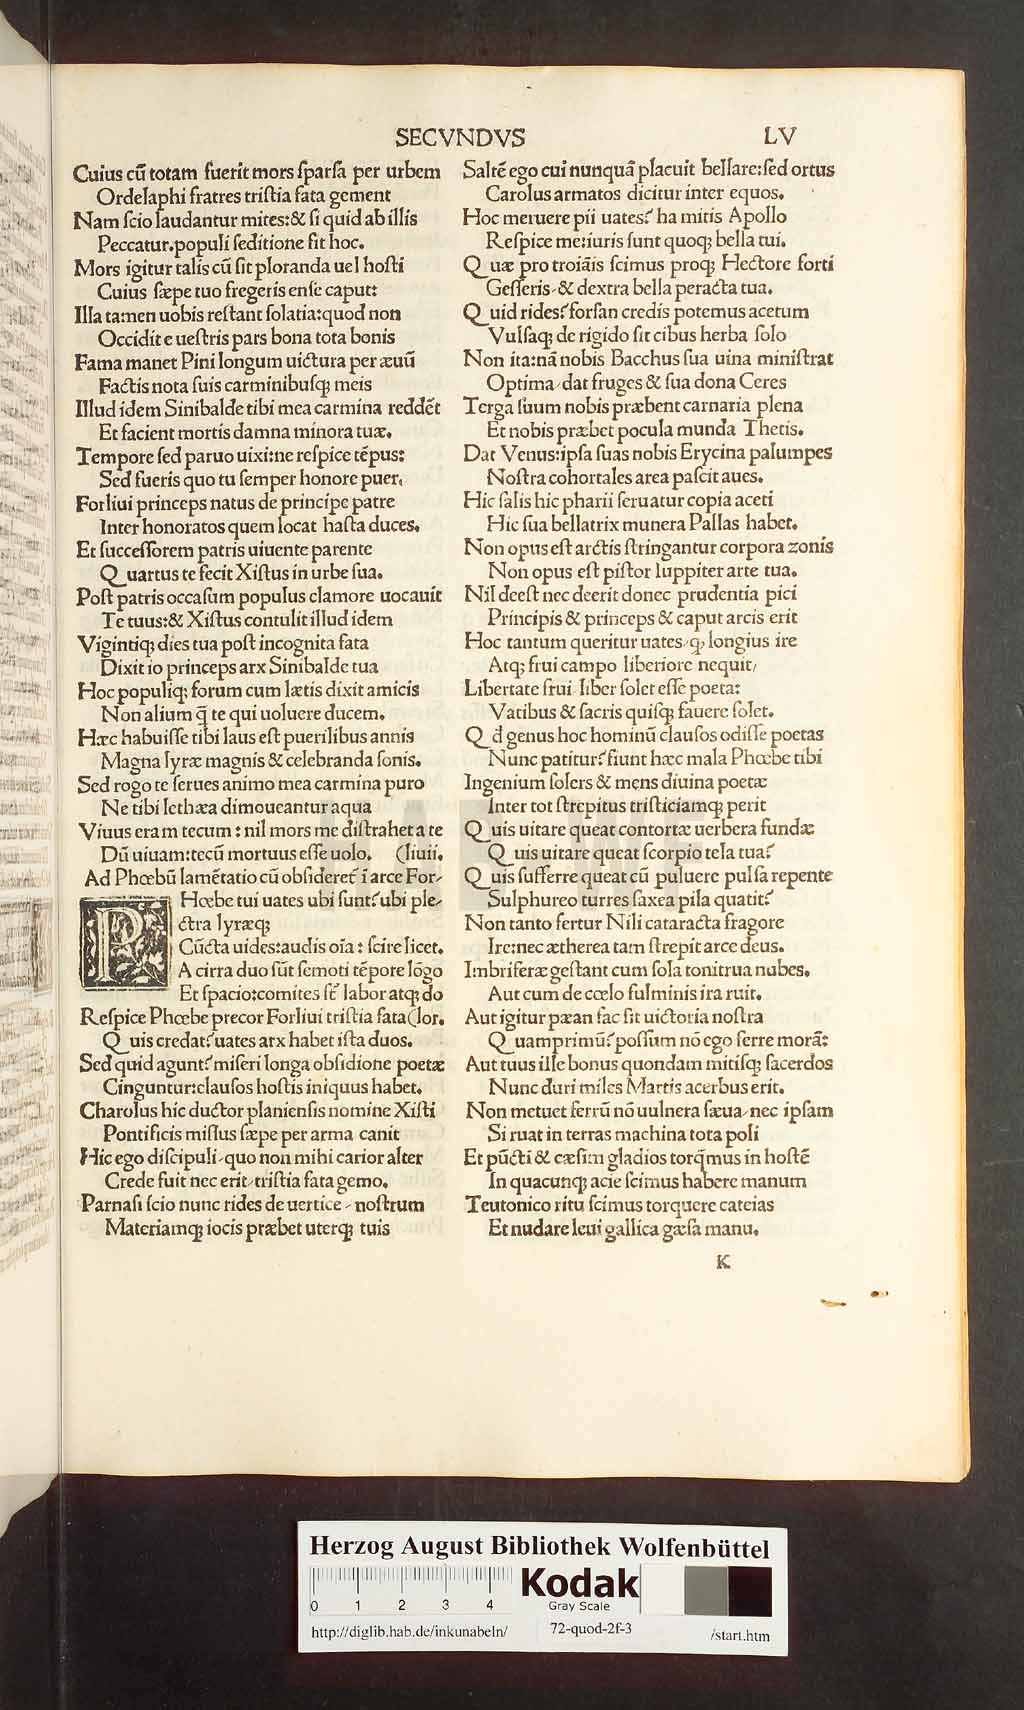 SECVNDVS
LV
Cuius cū totam fuerit mors sparsa per urbem
Ordelaphi fratres tristia fata gement
Nam scio laudantur mites:& si quid ab illis
Peccatur.populi seditione fit hoc.
Mors igitur talis cū sit ploranda uel hosti
Cuius sæpe tuo fregeris ense caput:
Illa tamen uobis restant solatia:quod non
Occidit e uestris pars bona tota bonis
Fama manet Pini longum uictura per æuū
Factis nota suis carminibusq; meis
Illud idem Sinibalde tibi mea carmina reddēt
Et facient mortis damna minora tuæ.
Tempore sed paruo uixi:ne respice tēpus:
Sed fueris quo tu semper honore puer.
Forliui princeps natus de principe patre
Inter honoratos quem locat hasta duces.
Et successorem patris uiuente parente
Quartus te fecit Xistus in urbe sua.
Post patris occasum populus clamore uocauit
Te tuus:& Xistus contulit illud idem
Vigintiq; dies tua post incognita fata
Dixit io princeps arx Sinibalde tua
Hoc populiq; forum cum lætis dixit amicis
Non alium q̄ te qui uoluere ducem.
Hæc habuisse tibi laus est puerilibus annis
Magna lyræ magnis & celebranda sonis.
Sed rogo te serues animo mea carmina puro
Ne tibi lethæa dimoueantur aqua
Viuus eram tecum : nil mors me distrahet a te
Dū uiuam:tecū mortuus esse uolo. (liuii.
Ad Phœbū lamētatio cū obsideret̄ ī arce For-
PHœbe tui uates ubi sunt?ubi ple-
ctra lyræq;
Cūcta uides:audis oīa : scire licet.
A cirra duo sūt semoti tēpore lōgo
Et spacio:comites st̄ labor atq; do
Respice Phœbe precor Forliui tristia fata(lor.
Quis credat?uates arx habet ista duos.
Sed quid agunt?miseri longa obsidione poetæ
Cinguntur:clausos hostis iniquus habet.
Charolus hic ductor planiensis nomine Xisti
Pontificis missus sæpe per arma canit
Hic ego discipuli-quo non mihi carior alter
Crede fuit nec erit-tristia fata gemo.
Parnasi scio nunc rides de uertice - nostrum
Materiamq; iocis præbet uterq; tuis
Saltē ego cui nunquā placuit bellare:sed ortus
Carolus armatos dicitur inter equos.
Hoc meruere pii uates? ha mitis Apollo
Respice me:iuris sunt quoq; bella tui.
Quæ pro troiāis scimus proq; Hectore forti
Gesseris-& dextra bella peracta tua.
Quid rides?forsan credis potemus acetum
Vulsaq; de rigido sit cibus herba solo
Non ita:nā nobis Bacchus sua uina ministrat
Optima-dat fruges & sua dona Ceres
Terga suum nobis præbent carnaria plena
Et nobis præbet pocula munda Thetis.
Dat Venus:ipsa suas nobis Erycina palumpes
Nostra cohortales area pascit aues.
Hic salis hic pharii seruatur copia aceti
Hic sua bellatrix munera Pallas habet.
Non opus est arctis stringantur corpora zonis
Non opus est pistor Iuppiter arte tua.
Nil deest nec deerit donec prudentia pici
Principis & princeps & caput arcis erit
Hoc tantum queritur uates-q; longius ire
Atq; frui campo liberiore nequit/
Libertate frui liber solet esse poeta:
Vatibus & sacris quisq; fauere solet.
Q d genus hoc hominū clausos odisse poetas
Nunc patitur?fiunt hæc mala Phœbe tibi
Ingenium solers & mens diuina poetæ
Inter tot strepitus tristiciamq; perit
Quis uitare queat contortæ uerbera fundæ
Quis uitare queat scorpio tela tua?
Quis sufferre queat cū puluere pulsa repente
Sulphureo turres saxea pila quatit?
Non tanto fertur Nili cataracta fragore
Ire:nec ætherea tam strepit arce deus.
Imbriferæ gestant cum sola tonitrua nubes.
Aut cum de cœlo fulminis ira ruit.
Aut igitur pæan fac sit uictoria nostra
Quamprimū?possum nō ego ferre morā:
Aut tuus ille bonus quondam mitisq; sacerdos
Nunc duri miles Martis acerbus erit.
Non metuet ferrū nō uulnera sæua-nec ipsam
Si ruat in terras machina tota poli
Et pūcti & cæsim gladios torq̄mus in hostē
In quacunq; acie scimus habere manum
Teutonico ritu scimus torquere cateias
Et nudare leui gallica gæsa manu.
K
HAB WF
Herzog August Bibliothek Wolfenbüttel
0 1 2 3 4
Kodak
Gray Scale
http://diglib.hab.de/inkunabeln/
72-quod-2f-3
/start.htm